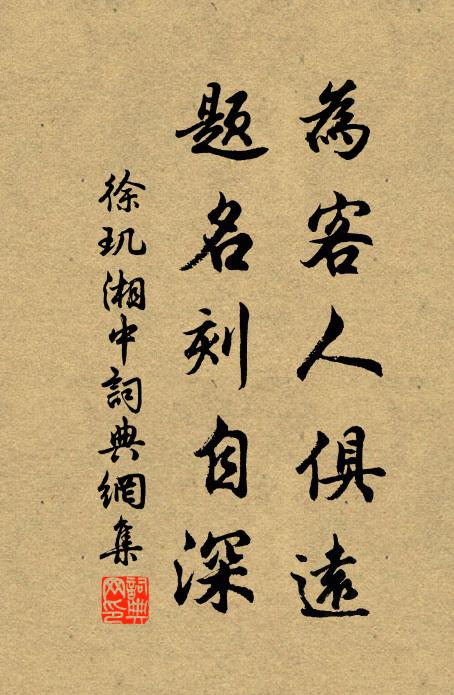 為客人俱遠
題名刻自深
徐玑湘中詞典網集
詞典
网印